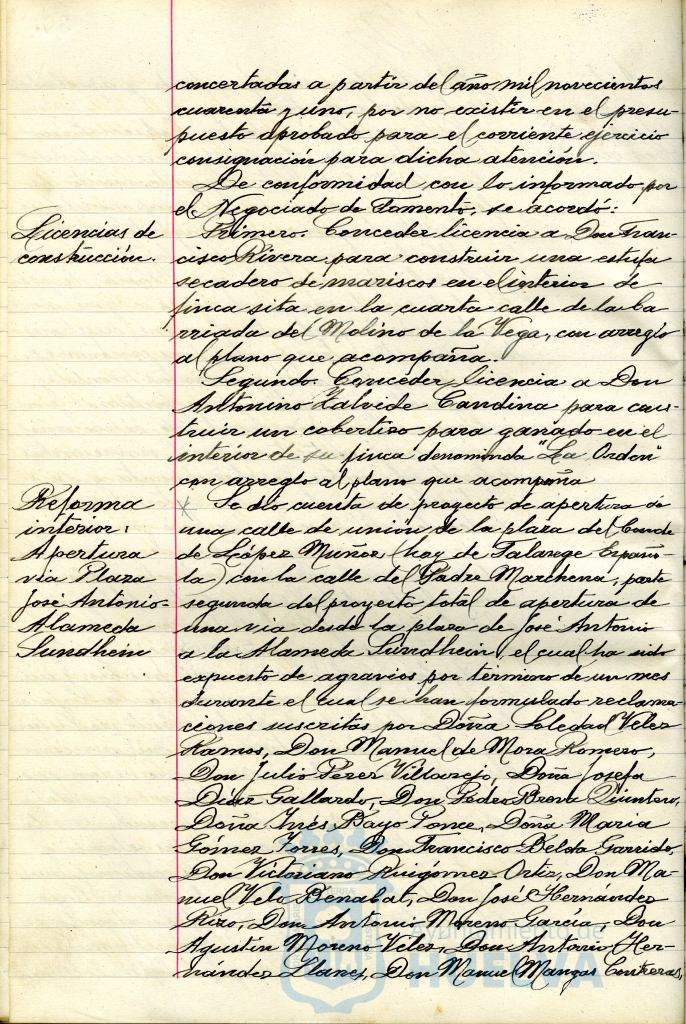 concertadas a partir del año mil novecientos
cuarenta y uno, por no existir en el presu-
puesto aprobado para el corriente ejercicio
consignación para dicha atención.
De conformidad con lo informado por
el Negociado de Fomento, se acordó:
Licencias de
construcción.
Primero. Conceder licencia a Don Fran-
cisco Rivera para construir una estufa
secadero de mariscos en el interior de
finca sita en la cuarta calle de la ba
rriada del Molino de la Vega, con arreglo
al plano que acompaña.
Segundo. Conceder licencia a Don
Antonino Zalvide Candina para cons-
truir un cobertizo para ganado en el
interior de su finca denominda "La Orden"
con arreglo al plano que acompaña
Reforma
interior:
Apertura
via Plaza
José Antonio-
Alameda
Sundhein
Se dio cuenta de proyecto de apertura de
una calle de union de la plaza del Conde
de López Muñoz (hoy de Falange Españo-
la) con la calle del Padre Marchena, parte
segunda del proyecto total de apertura de
una via desde la plaza de José Antonio
a la Alameda Sundhein, el cual ha sido
expuesto de agravios por término de un mes
durante el cual se han formulado reclama-
ciones suscritas por Doña Soledad Vélez
Ramos, Don Manuel de Mora Romero,
Don Julio Pérez Villarejo, Doña Josefa
Díaz Gallardo, Don Pedro Quintero,
Doña Inés Bayo Ponce, Doña Maria
Gómez Torres, Don Francisco Belda Garrido,
Don Victoriano Ruigómez Ortiz, Don Ma-
nuel Velo Benabat, Don José Hernández
Rizo, Don Antonio Moreno García, Don
Agustín Moreno Vélez, Don Antonio Her-
nández Llanes, Don Manuel Mangas Contreras,
Ayuntamiento de
HUELVA